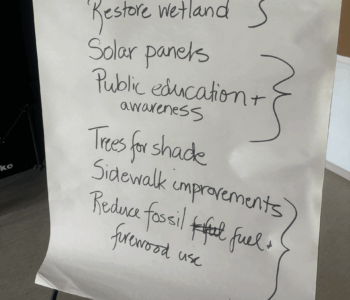 Restore wetland
Solar panels
Public education +
awareness
Trees for shade
Sidewalk improvements
Reduce fossil fuel +
firewood use
ko